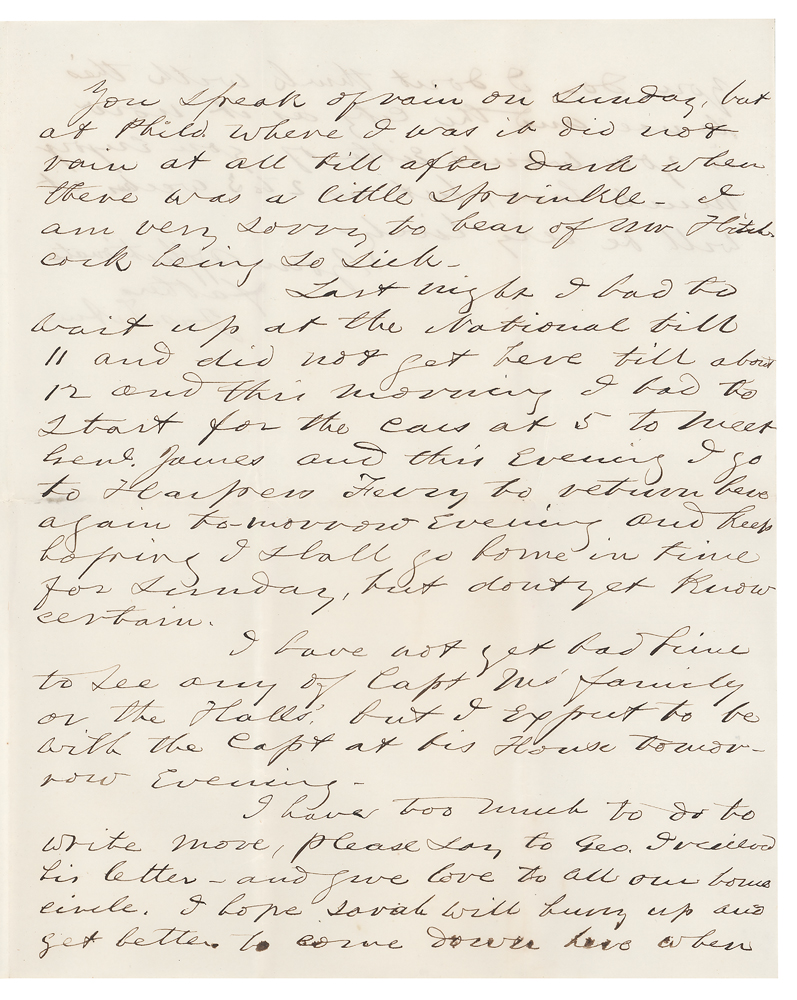 You speak of rain on Sunday, but
at Phild. where I was it did not
rain at all till after dark when
there was a little sprinkle - I
am very sorry to hear of Mr Hitch-
cock being so sick -
Last night I had to
wait up at the National till
11 and did not get here till about
12 and this morning I had to
start for the cars at 5 to meet
Genl. James and this Evening I go
to Harpers Ferry to return here
again to-morrow Evening and keep
hoping I shall go home in time
for Sunday, but dont yet know
certain.
I have not yet had time
to see any of Capt Ms' family
or the Halls'. but I Expect to be
with the Capt at his House tomor-
row Evening -
I have too much to do to
write more, please say to Geo. I recieved
his letter - and give love to all our home
circle. I hope Sarah will hurry up and
get better to come down here when